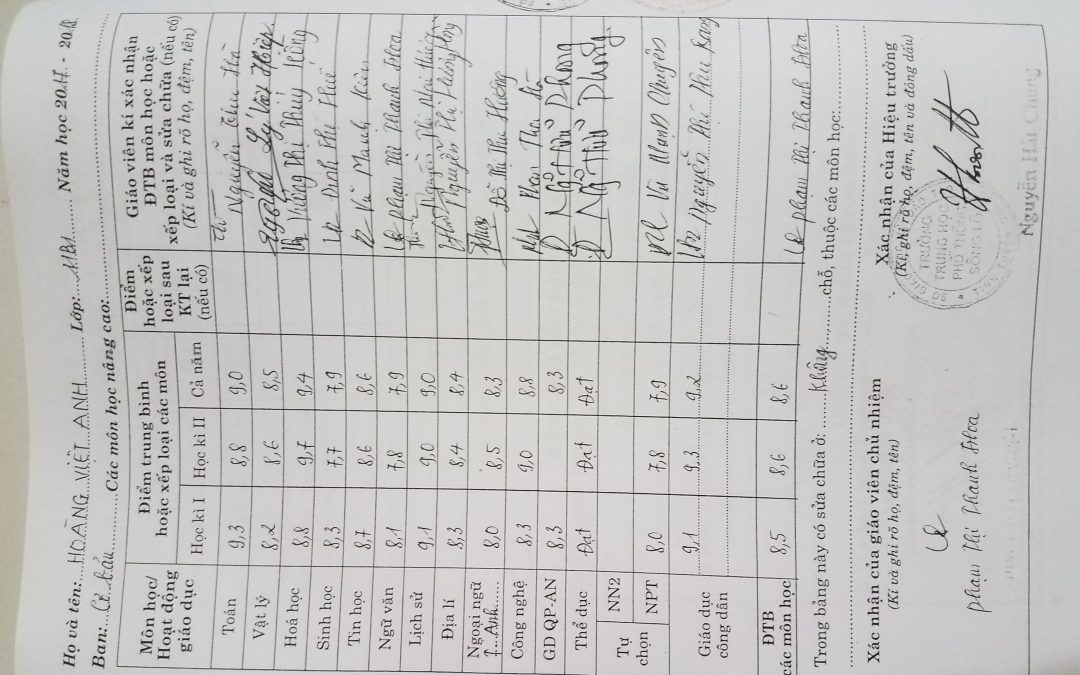 Họ và tên: HOÀNG VIỆT ANH Lớp: 11B1 Năm học 2017 - 2018
Ban: Cơ bản Các môn học nâng cao:
Môn học/ Hoạt động giáo dục
Điểm trung bình hoặc xếp loại các môn
Điểm hoặc xếp loại sau KT lại (nếu có)
Giáo viên kí xác nhận ĐTB môn học hoặc xếp loại và sửa chữa (nếu có) (Kí và ghi rõ họ, đệm, tên)
Học kì I Học kì II Cả năm
Toán 9,3 8,8 9,0 Nguyễn Thu Hà
Vật lý 8,2 8,6 8,5 Lý Việt Hiệp
Hoá học 8,8 9,7 9,4 Vương Thị Thuý Hồng
Sinh học 8,3 7,7 7,9 Đinh Thị Huế
Tin học 8,7 8,6 8,6 Vũ Mạnh
Ngữ văn 8,1 7,8 7,9 Phạm Thị Thanh Hoa
Lịch sử 9,1 9,0 9,0 Nguyễn Thị
Địa lí 8,3 8,4 8,4 Nguyễn Thị
Ngoại ngữ T. Anh 8,0 8,5 8,3 Đỗ Thị Thu Hường
Công nghệ 8,3 9,0 8,8
GD QP-AN 8,3 8,3 Phong
Thể dục Đạt Đạt Đạt Phong
Tự chọn NN2
NPT 8,0 7,8 7,9 Vũ Mạnh
Giáo dục công dân 9,1 9,3 9,2 Nguyễn Thị Thu
ĐTB các môn học 8,5 8,6 8,6 Phạm Thị Thanh Hoa
Trong bảng này có sửa chữa ở: Không chỗ, thuộc các môn học:
Xác nhận của giáo viên chủ nhiệm
(Kí và ghi rõ họ, đệm, tên)
Phạm Thị Thanh Hoa
Xác nhận của Hiệu trưởng
(Kí, ghi rõ họ, đệm, tên và đóng dấu)
TRƯỜNG
TRUNG HỌC
PHỔ THÔNG
SÔNG LÔ